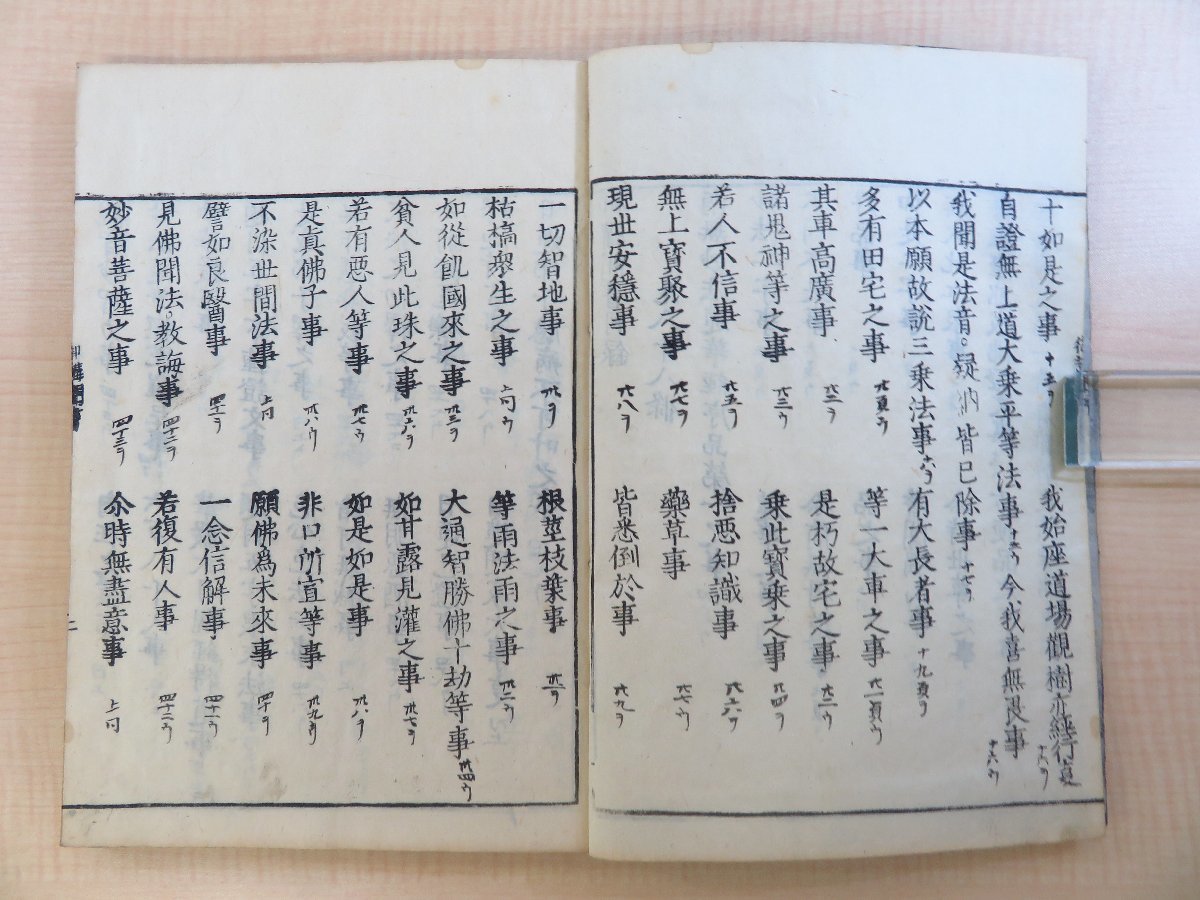 十如是之事 十五ヲ 我始座道場觀樹亦經行事 十六ヲ
自證無上道大乘平等法事 十六ヲ 今我喜無畏事 十六ウ
我聞是法音 疑網皆已除事 十七ヲ
以本願故説三乘法事 十八ウ 有大長者事 十九頁ウ
多有田宅之事 廿頁ヲ 等一大車之事 廿一頁ウ
其車高廣事 廿二ヲ 是朽故宅之事 廿二ウ
諸鬼神等之事 廿三ウ 乘此寶乘之事 廿四ウ
若人不信事 廿五ヲ 捨惡知識事 廿六ヲ
無上寶聚之事 廿七ヲ 藥草事 廿七ウ
現世安穩事 廿八ヲ 皆悉到於事 廿九ヲ
一切智地事 卅ヲ 根莖枝葉事 卅一ヲ
枯槁衆生之事 上同ウ 等雨法雨之事 卅二ウ
如從飢國來之事 卅三ヲ 大通智勝佛十劫等事 卅四ウ
貧人見此珠之事 卅六ヲ 如甘露見灌之事 卅七ウ
若有惡人等事 卅七ウ 如是如是事 卅八ヲ
是真佛子事 卅八ウ 非口所宣等事 卅九ヲ
不染世間法事 上同 願佛爲未來事 四十ヲ
譬如良醫事 四十ウ 一念信解事 四十一ウ
見佛聞法教誨事 四十二ヲ 若復有人事 四十二ウ
妙音菩薩之事 四十三ヲ 尒時無盡意事 上同
二